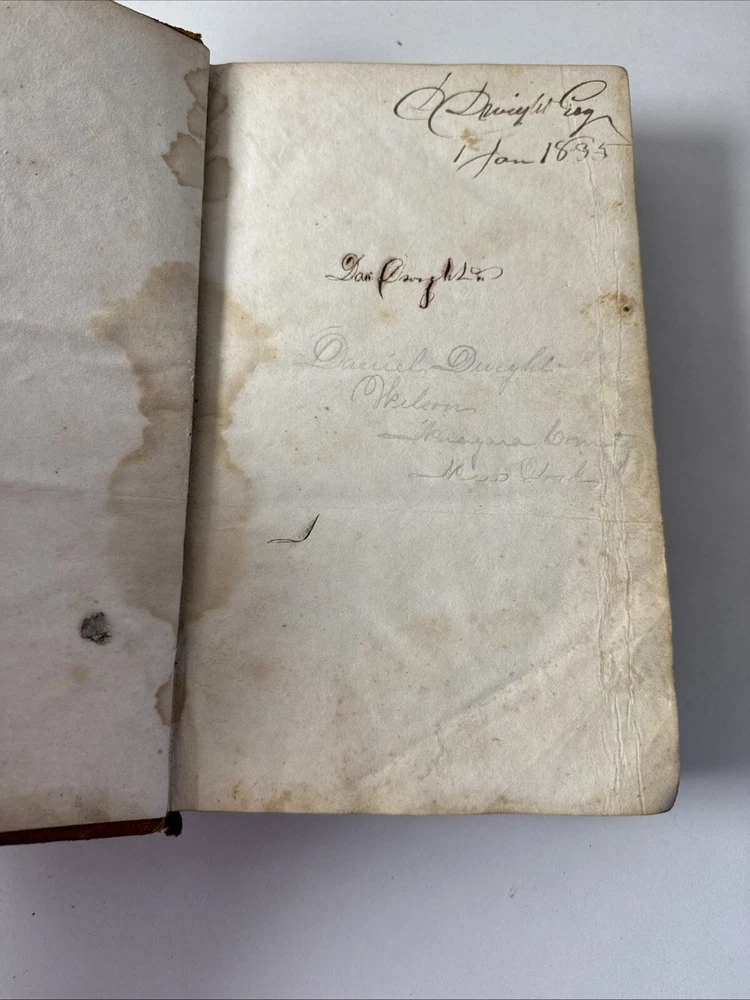 D Dwight Esq
1 Jan 1835
Dan Dwight
Daniel Dwight
Wilson
Niagara County
New York